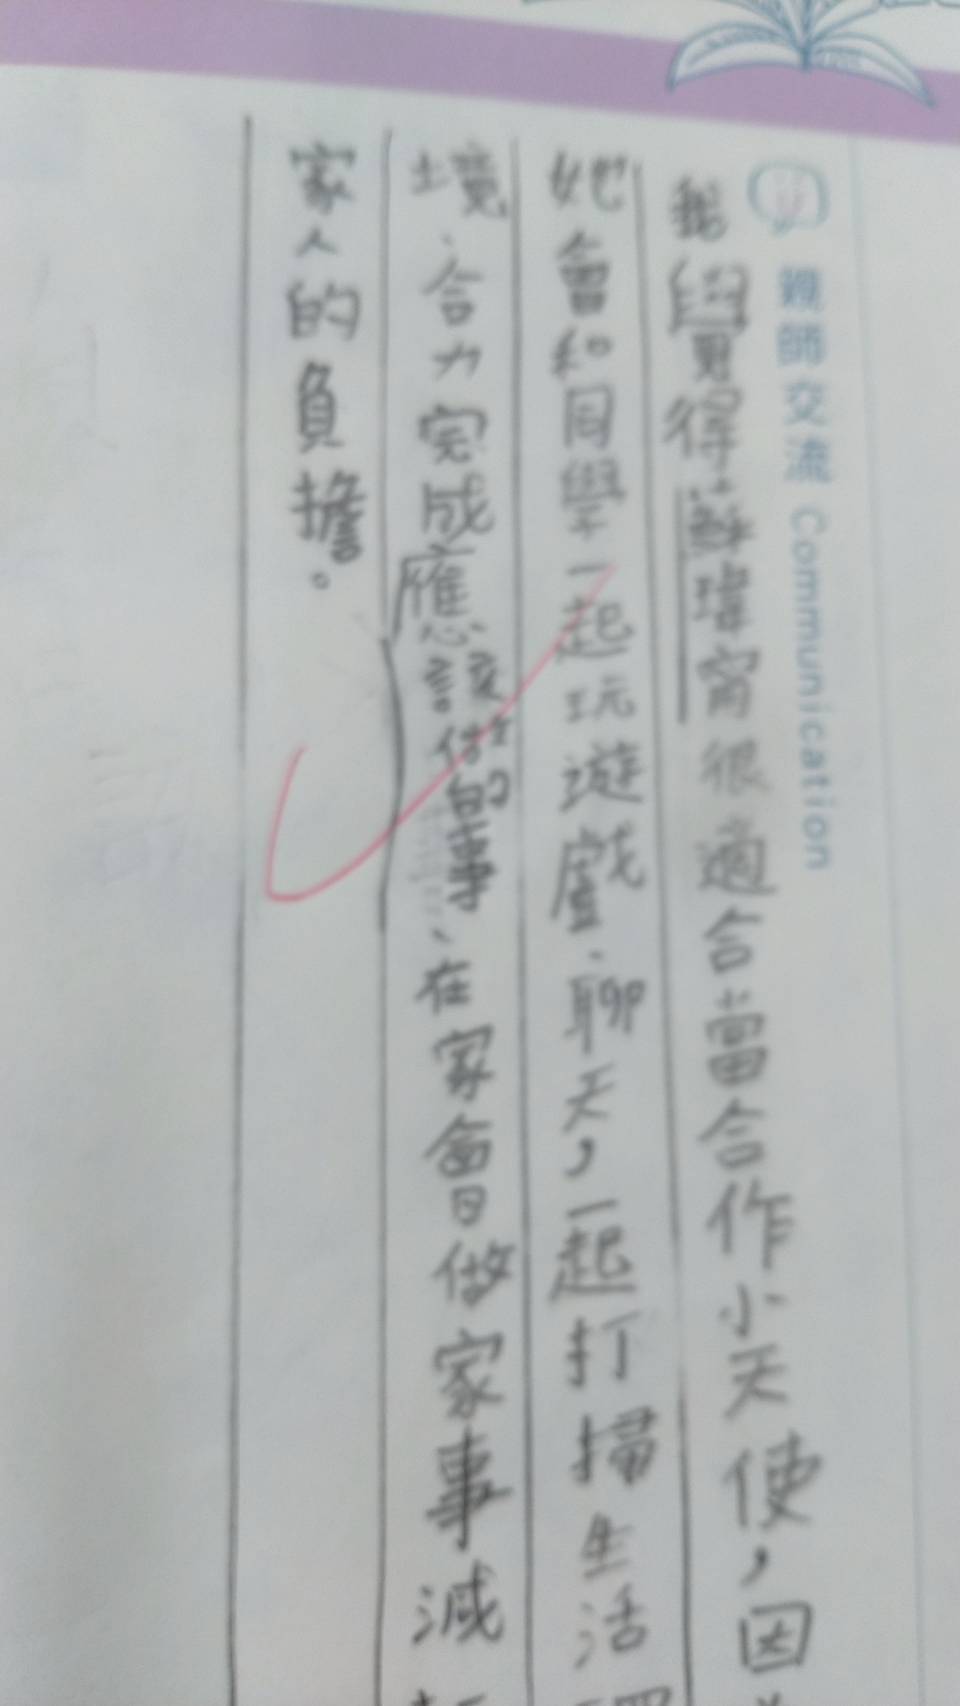 親師交流 Communication
我覺得蘇瑋甯很適合當合作小天使,因
她會和同學一起玩遊戲、聊天,一起打掃生活環
境、合力完成應該做的事、在家會日做家事減
家人的負擔。